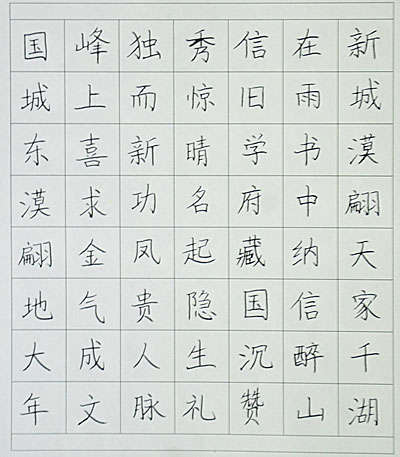 国峰独秀信在新
城上而惊旧雨城
东喜新晴学书漠
漠求功名府中翩
翩金凤起藏纳天
地气贵隐国信家
大成人生沉醉千
年文脉礼赞山湖